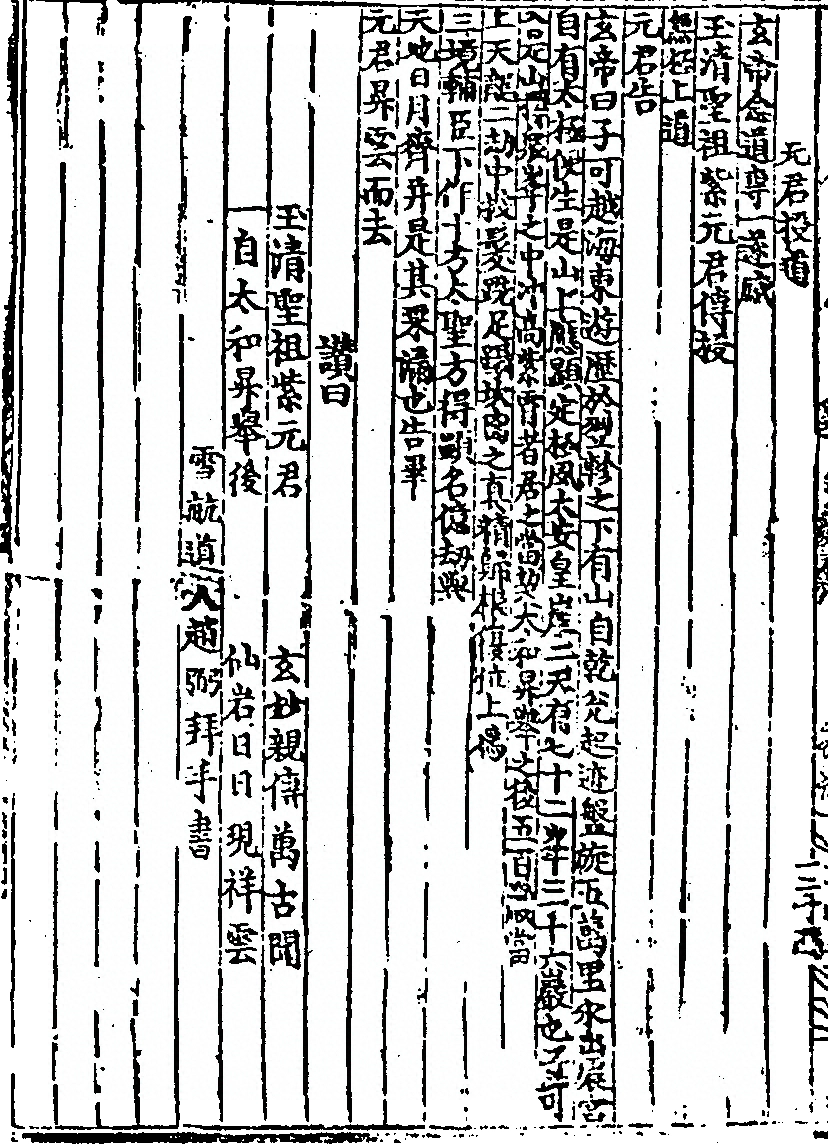 元君授道
玄帝念道專一遂感
玉清聖祖紫元君傳授
無極上道
元君告
玄帝曰子可越海東遊歷於翌軫之下有山自乾兊起迹盤旋五萬里水出震宮
自有太極便生是山上應顯定極風太安皇崖二天有七十二峯三十六巖也子可
入是山擇眾峯之中冲高紫霄者居之當契太和昇舉之後五百歲當
上天龍二劫中披髮跣足躡坎离之真精歸根復位上僊
三境輔臣下作十方太聖方得顯名億劫與
天地日月齊并是其果滿也告畢
元君昇雲而去
讚曰
玉清聖祖紫元君 玄妙親傳萬古聞
一自太和昇舉後 仙岩日日現祥雲
雪航道人趙弼拜手書